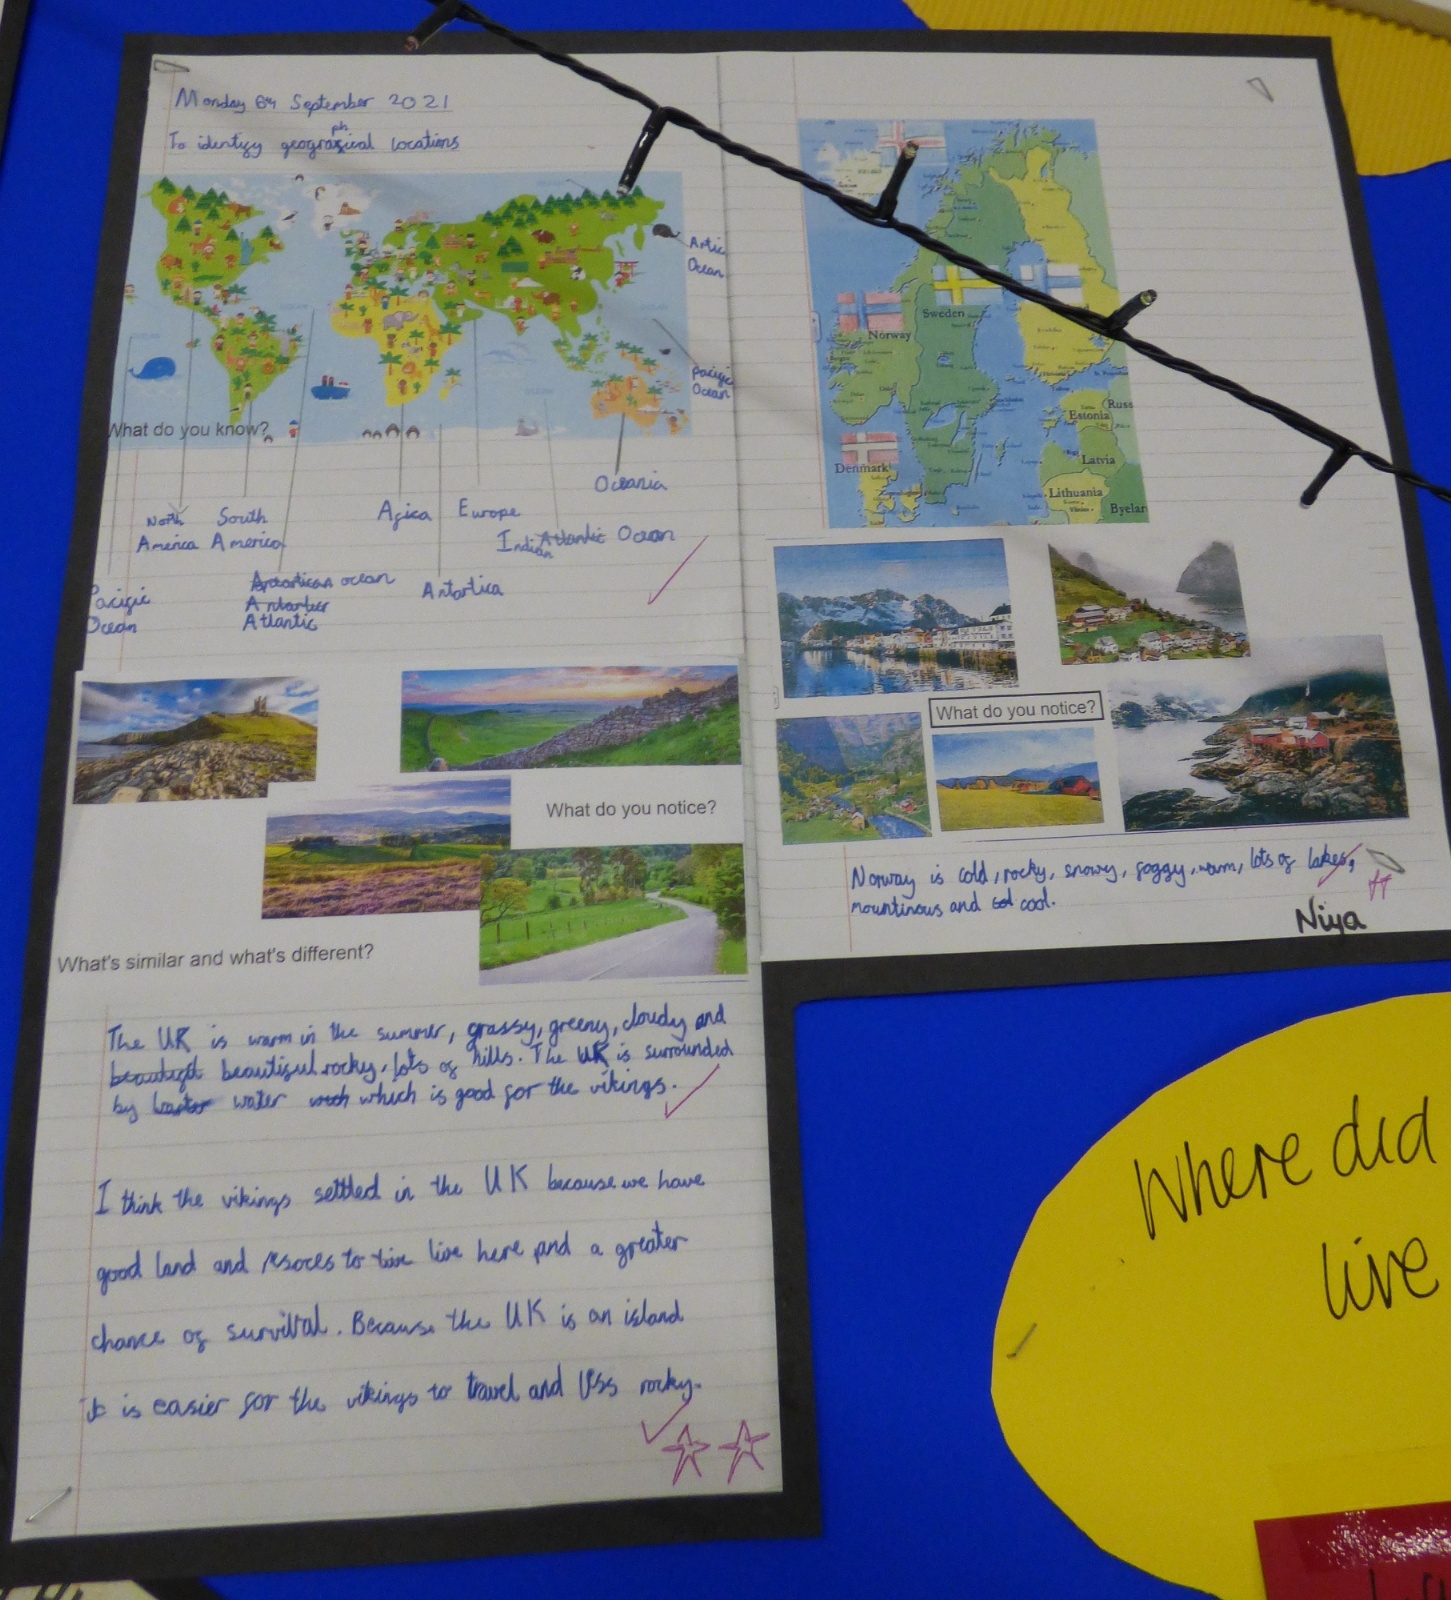 Monday 6th September 2021
To identify geographical locations
Artic
Ocean
Pacific
Ocean
What do you know?
Oceania
North
America
South
America
Africa
Europe
Indian Atlantic Ocean
Pacific
Ocean
Antartican ocean
Antarter
Atlantic
Antartica
What do you notice?
What's similar and what's different?
The UK is warm in the summer, grassy, greeny, cloudy and
beautiful rocky, lots of hills. The UK is surrounded
by water which is good for the vikings.
I think the vikings settled in the UK because we have
good land and resorces to live here and a greater
chance of survival. Because the UK is an island
it is easier for the vikings to travel and less rocky.
Norway
Sweden
Denmark
Estonia
Russ
Latvia
Lithuania
Byelar
What do you notice?
Norway is cold, rocky, snowy, foggy, warm, lots of lakes,
mountinous and cool.
Niya
Where did
live